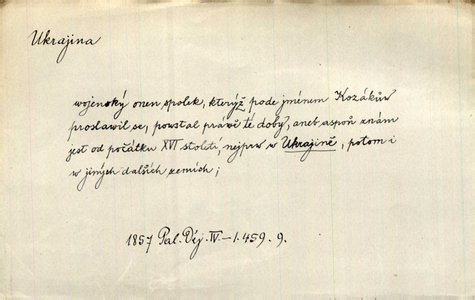 Ukrajina
wojenský onen spolek, kterýž pode jménem Kozákůw
proslawil se, powstal práwě té doby, aneb aspoň znám
jest od počátku XVI století, nejprw w Ukrajině, potom i
w jiných dalších zemích;
1857 Pal. Děj. IV-1.459.9.